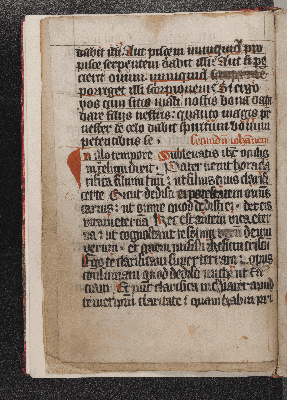 dabit illi Aut piscem nunquid pro
pisce serpentem dabit illi Aut si pe
cierit ouum nunquid
porriget illi scorpionem Si ergo
vos cum sitis mali nostis bona data
dare filiis vestris quanto magis pr
vester de celo dabit spiritum bonum
petentibus se Secundum iohannem
In illo tempore Subleuatis ihc oculis
in celum dixit Pater venit hora cla
rifica filium tuum ut filius tuus clarificet
te Sicut dedisti ei potestatem omnis
carnis ut omne quod dedisti ei det eis
vitam eternam Hec est autem vita eter
na ut cognoscant te solum verum deum
verum et quem misisti ihesum cristum
Ego te clarificaui super terram opus
consummaui quod dedisti michi ut fa
ciam Et nunc clarifica me tu pater apud
te metipsum claritate quam habui pri